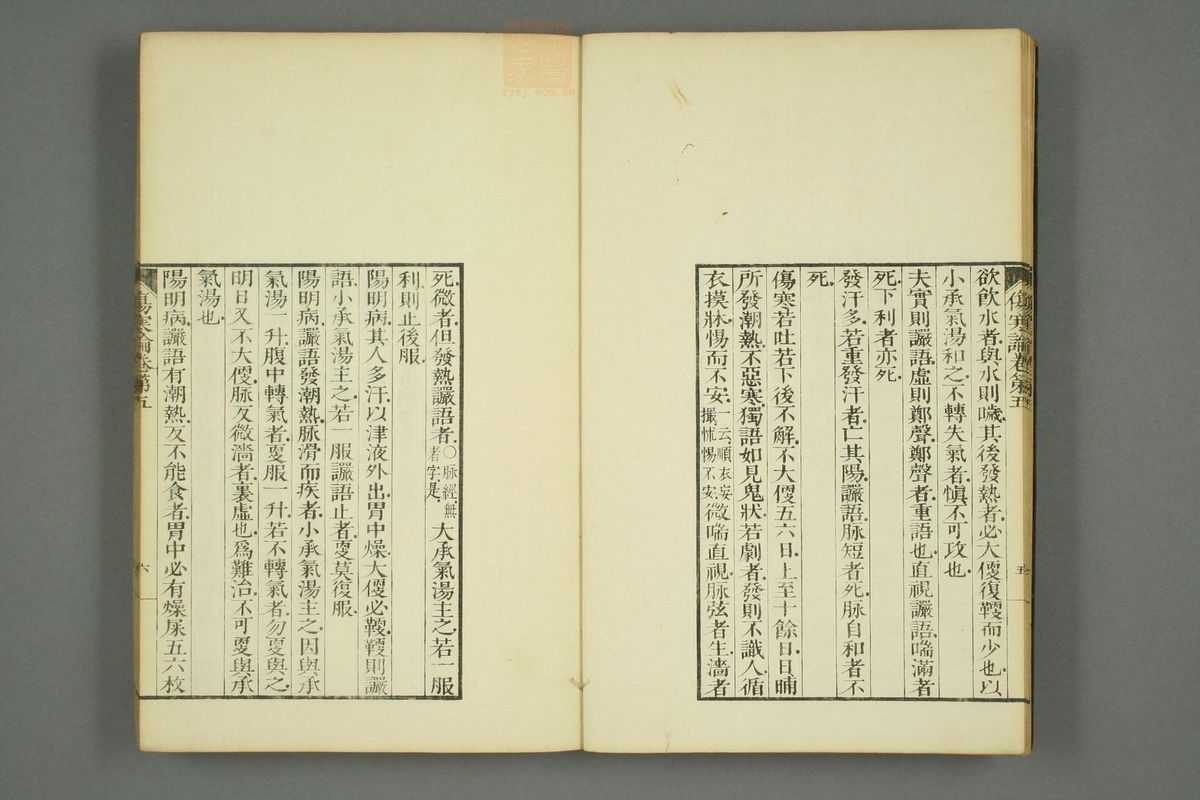 欲飲水者與水則噦其後發熱者必大便復鞕而少也以
小承氣湯和之不轉失氣者慎不可攻也
夫實則讝語虛則鄭聲鄭聲者重語也直視讝語喘滿者
死下利者亦死
發汗多若重發汗者亡其陽讝語脈短者死脈自和者不
死
傷寒若吐若下後不解不大便五六日上至十餘日日晡
所發潮熱不惡寒獨語如見鬼狀若劇者發則不識人循
衣摸牀惕而不安一云順衣妄撮怵惕不安微喘直視脈弦者生濇者
傷寒論卷第五
五
死微者但發熱讝語者〇脈經無者字是大承氣湯主之若一服
利則止後服
陽明病其人多汗以津液外出胃中燥大便必鞕鞕則讝
語小承氣湯主之若一服讝語止者更莫復服
陽明病讝語發潮熱脈滑而疾者小承氣湯主之因與承
氣湯一升腹中轉氣者更服一升若不轉氣者勿更與之
明日又不大便脈反微濇者裏虛也爲難治不可更與承
氣湯也
陽明病讝語有潮熱反不能食者胃中必有燥屎五六枚
傷寒論卷第五
六
zysj.com.cn